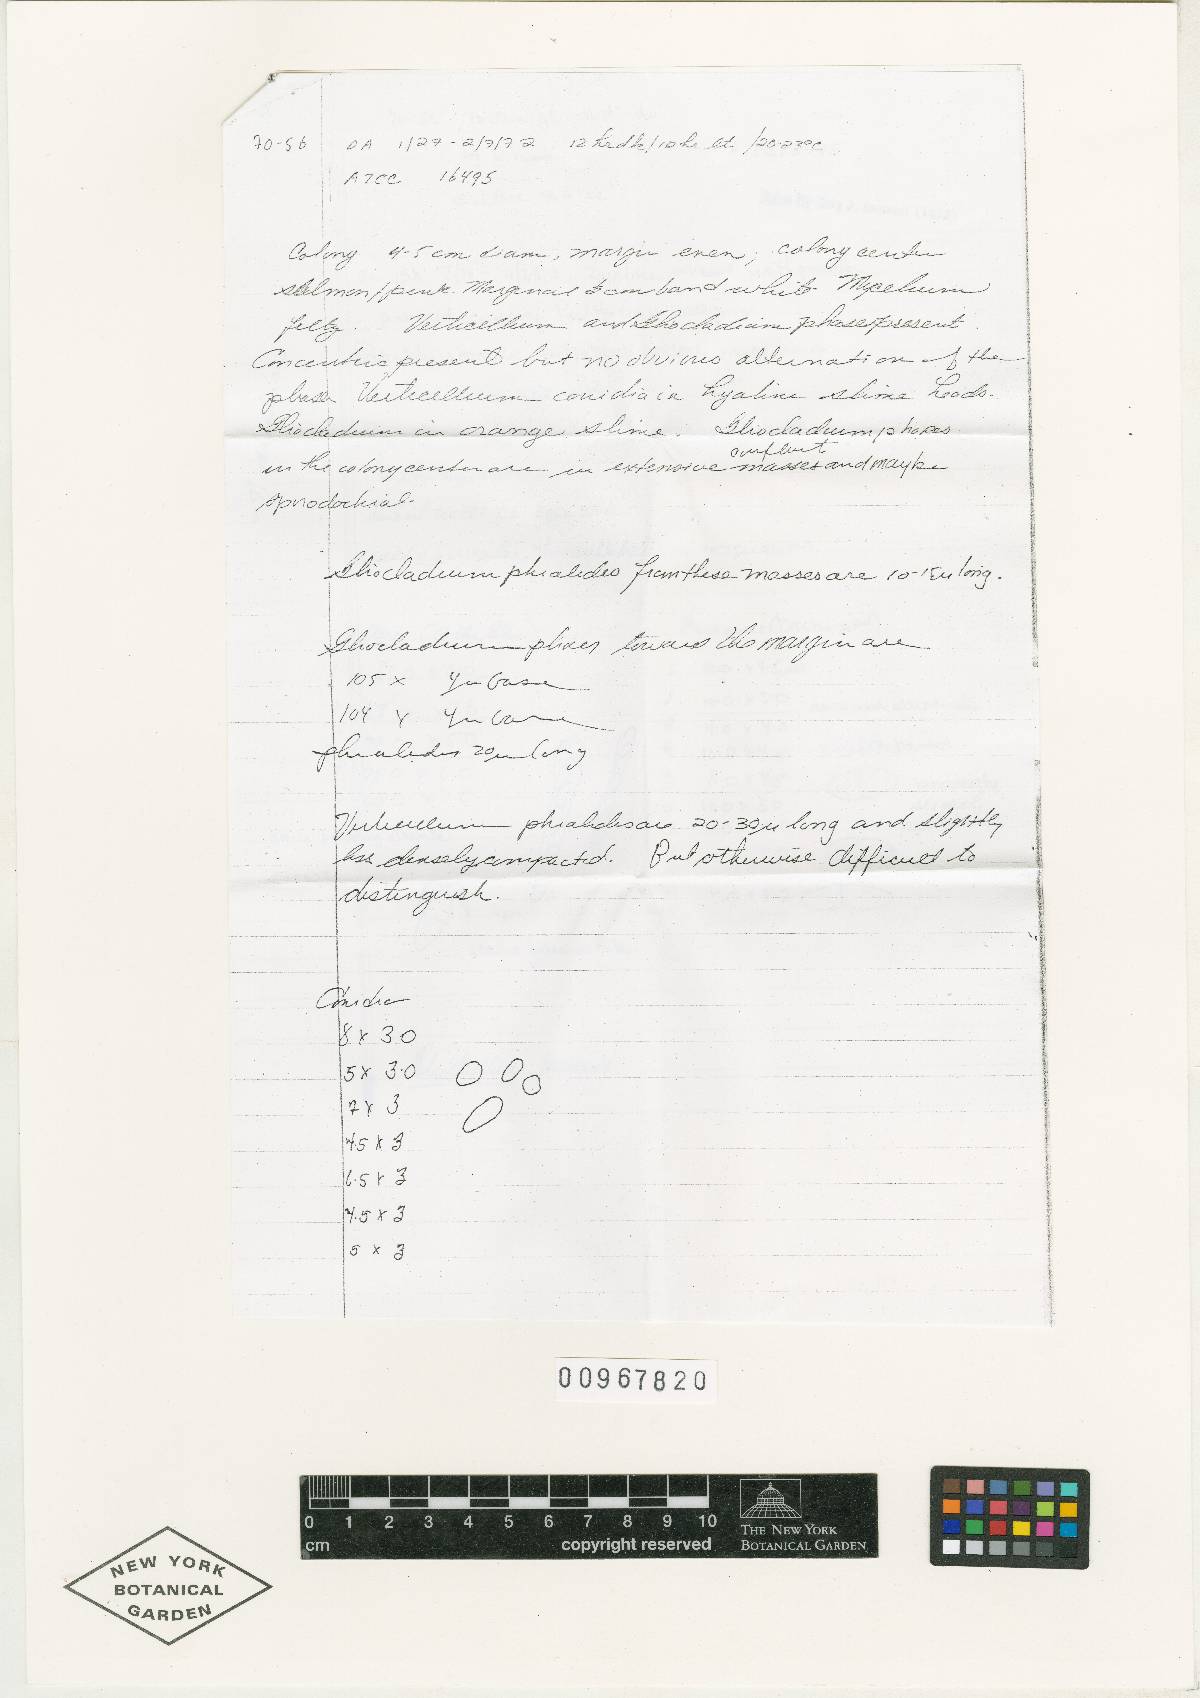 70-56 OA 1/27 - 2/7/72 12 hr dk/12 hr lt /20-22°C
ATCC 16495
Colony 4-5 cm diam, margin even; colony center
salmon/pink. Marginal cm band white Mycelium
felty. Verticillium and Gliocladium phases present.
Concentric present but no obvious alternation of the
phases Verticillium conidia in hyaline slime heads.
Gliocladium in orange slime. Gliocladium phases
confluent
in the colony center are in extensive masses and may be
sporodochial.
Gliocladium phialides from these masses are 10-15µ long.
Gliocladium phases toward the margin are
105 x 4µ base
104 x 4µ base
phialides 20µ long
Verticillium phialides are 20-30µ long and slightly
less densely compacted. But otherwise difficult to
distinguish.
Conidia
8 x 3.0
5 x 3.0
7 x 3
4.5 x 3
6.5 x 3
4.5 x 3
5 x 3
00967820
0 1 2 3 4 5 6 7 8 9 10
cm copyright reserved
THE NEW YORK
BOTANICAL GARDEN
NEW YORK
BOTANICAL
GARDEN